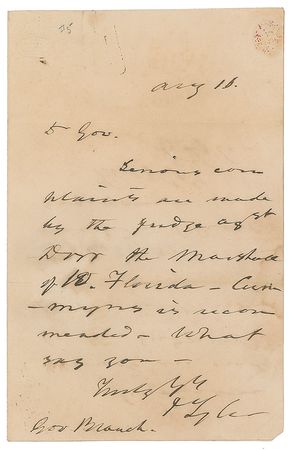 Aug 16.
D Gov.
Serious com
plaints are made
by the Judge agst
Dorr the Marshall
of W. Florida - Cum
-myngs is recom
mended - What
say you -
Truly Yr
J Tyler
Gov Branch.